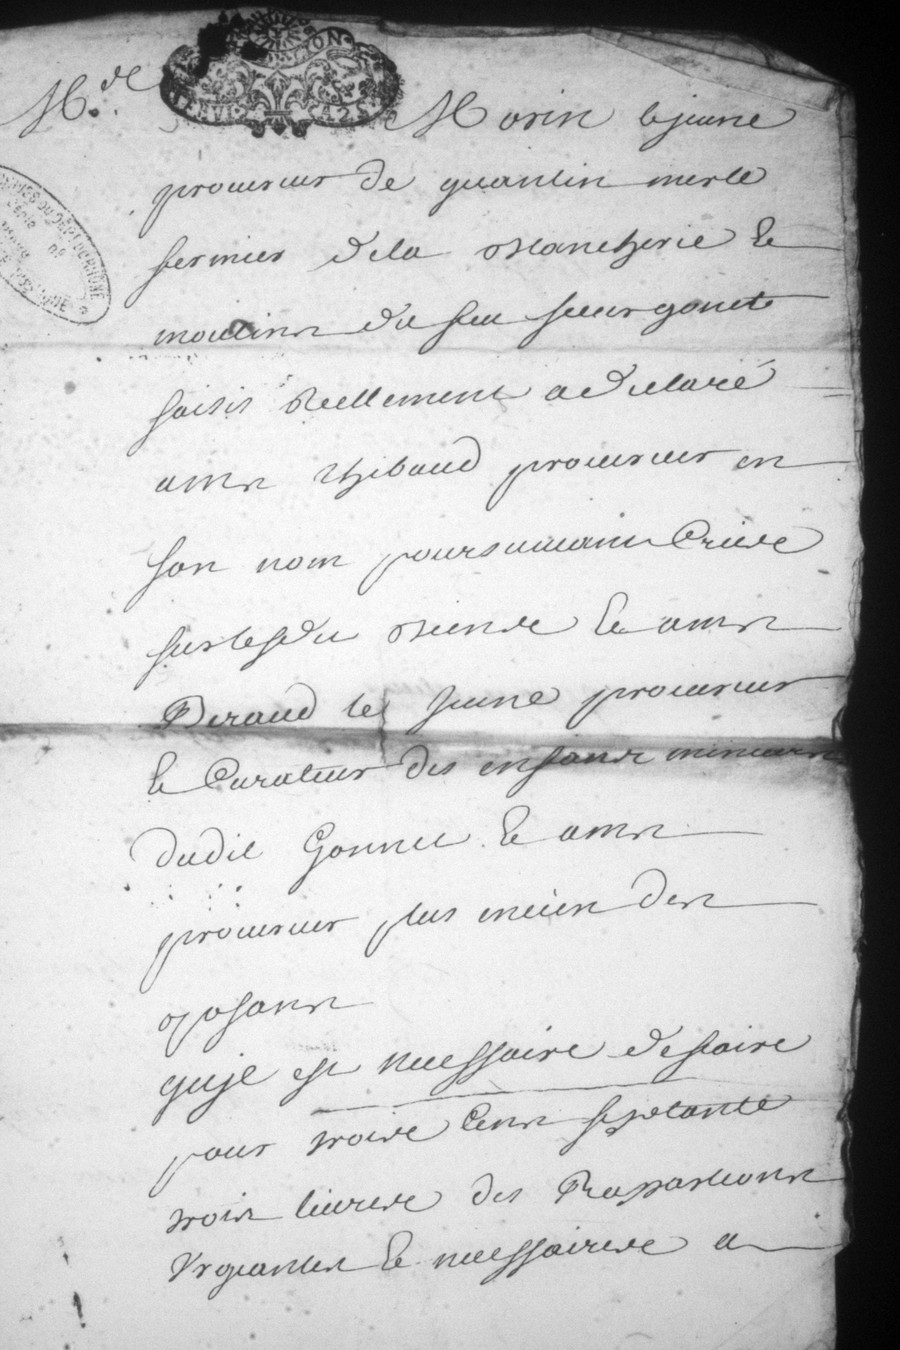 Md. Morin lejeune
procureur de quantin merle
fermier dela Blancherie et
moulins du feu sieur gonet
saisis Reellement a declaré
a mes Thibaud procureur en
son nom poursuivant Criée
sur lesdits et a mes
Beraud le Jeune procureur
et Curateur des enfans mineurs
dudit Gonnet et a mes
procureur plus encien des
oposans
quil est necessaire de faire
pour trois Cens septante
trois livres des Reparations
Urgentes et necessaires a